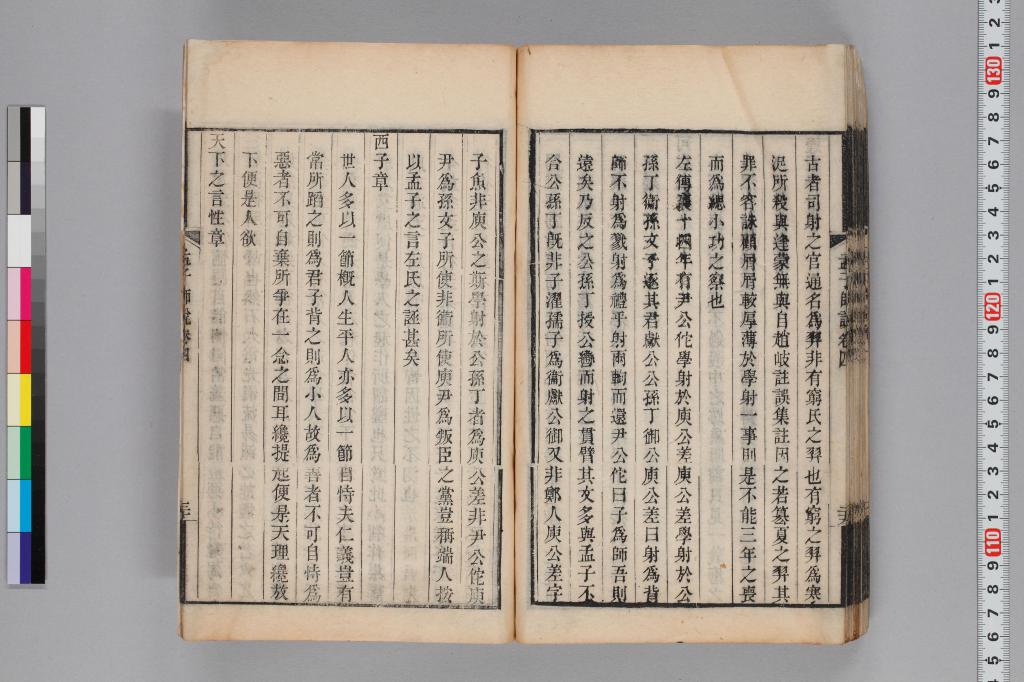 古者司射之官通名為羿非有窮氏之羿也有窮之羿為寒
浞所殺與逢蒙無與自趙岐註誤集註因之若纂夏之羿其
罪不容誅顧屑屑較厚薄於學射一事則是不能三年之喪
而為緦小功之察也
左傳襄十四年有尹公佗學射於庾公差庾公差學射於公
孫丁衞孫文子逐其君獻公公孫丁御公庾公差曰射為背
師不射為戮射為禮乎射兩軥而還尹公佗曰子為師吾則
遠矣乃反之公孫丁授公轡而射之貫臂其文多與孟子不
合公孫丁旣非子濯孺子為衞獻公御又非鄭人庾公差字
子魚非庾公之斯學射於公孫丁者為庾公差非尹公佗庾
尹為孫文子所使非衞所使庾尹為叛臣之黨豈稱端人按
以孟子之言左氏之誣甚矣
西子章
世人多以一節概人生平人亦多以一節自恃夫仁義豈有
常所蹈之則為君子背之則為小人故為善者不可自恃為
惡者不可自棄所爭在一念之間耳纔提起便是天理纔放
下便是人欲
天下之言性章
孟子師說卷四
孟子師說卷四
130
120
110